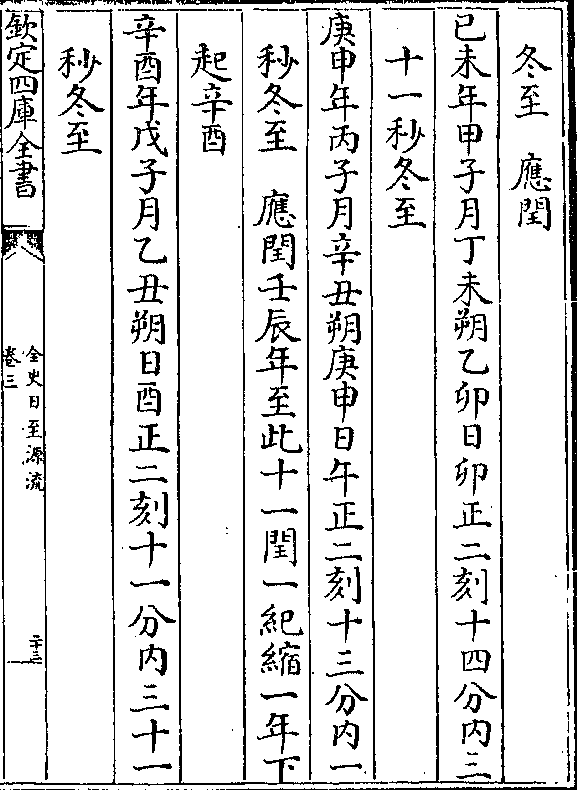 冬至　應閏
己未年甲子月丁未朔乙卯日卯正二刻十四分内三
十一秒冬至
庚申年丙子月辛丑朔庚申日午正二刻十三分内一
秒冬至　應閏壬辰年至此十一閏一紀縮一年下
起辛酉
辛酉年戊子月乙丑朔日酉正二刻十一分内三十一
秒冬至
欽定四庫全書
全史日至源流
卷三
二十三